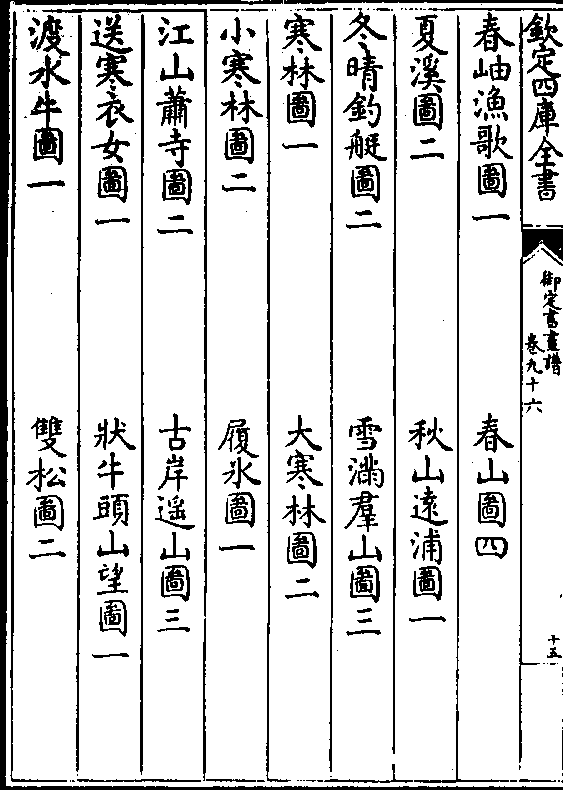 欽定四庫全書
御定書畫譜
卷九十六
十五
春岫漁歌圖一
春山圖四
夏溪圖二
秋山遠浦圖一
冬晴釣艇圖二
雪滿羣山圖三
寒林圖一
大寒林圖二
小寒林圖二
履氷圖一
江山蕭寺圖二
古岸遥山圖三
送寒衣女圖一
狀牛頭山望圖一
渡水牛圖一
雙松圖二